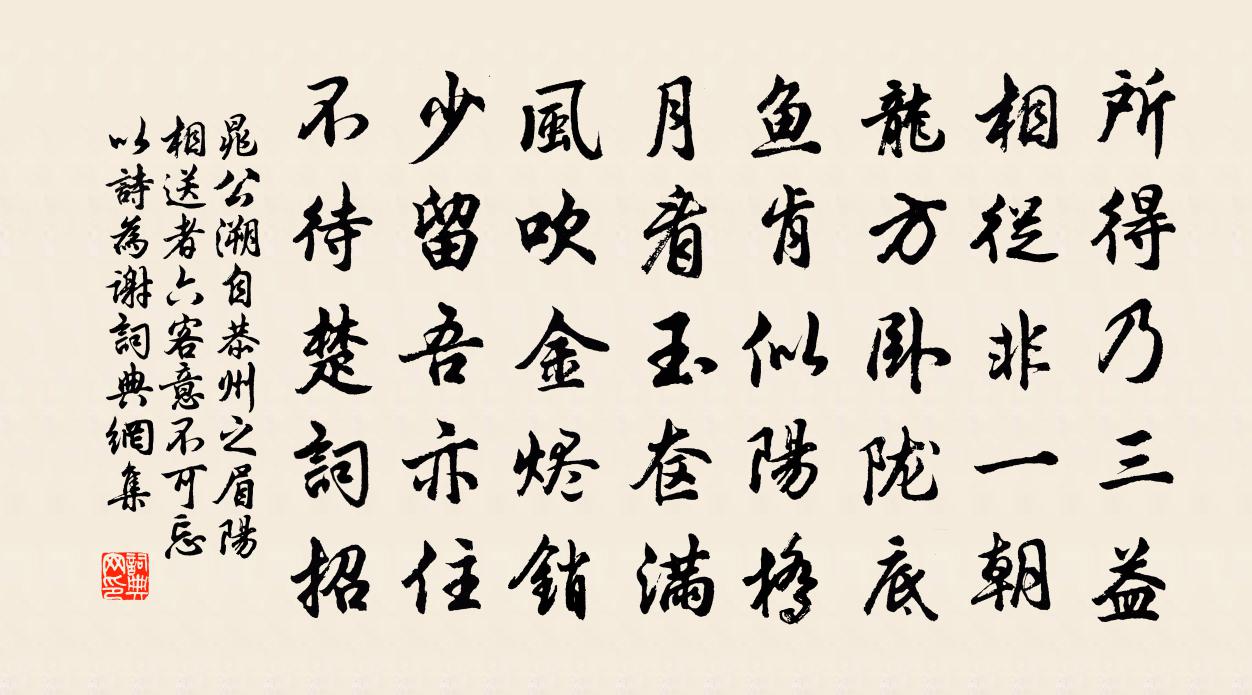 所得乃三益
相從非一朝
龍方卧陇底
鱼肯似陽橋
月看玉奩满
風吹金烬銷
少留吾亦住
不待楚詞招
晁公溯自恭州之眉陽
相送者六客意不可忘
以詩為謝詞典網集
詞典
网印